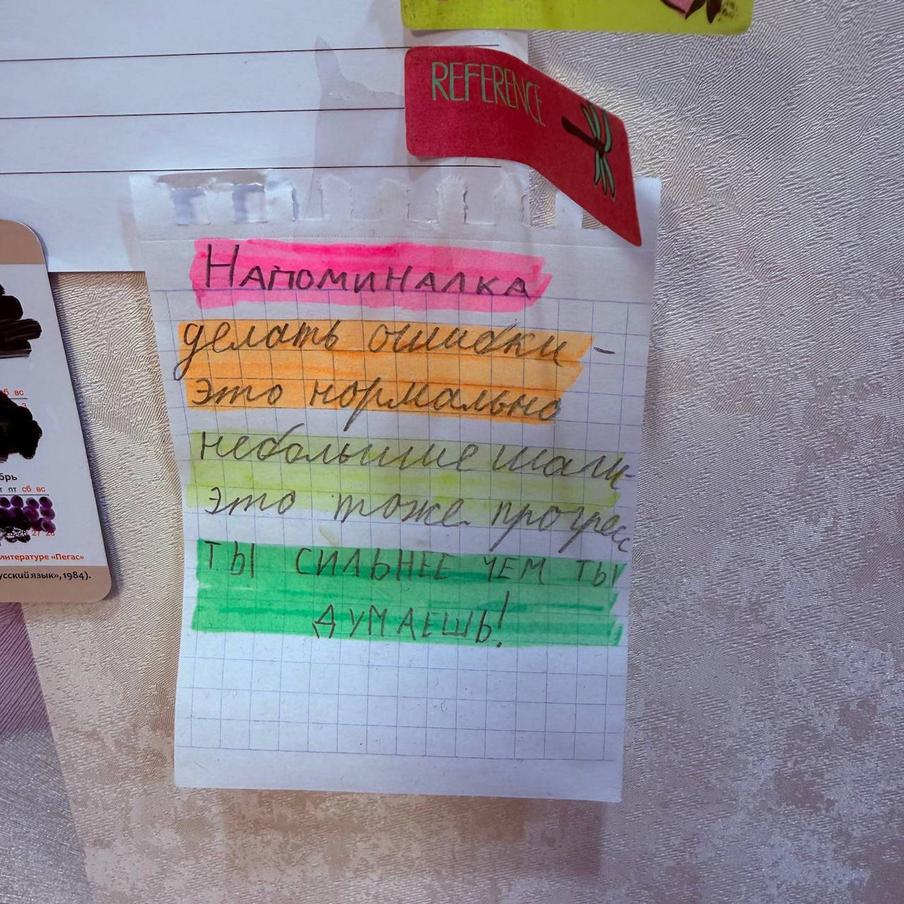 REFERENCE
Напоминалка
делать ошибки -
это нормально
небольшие шаги-
это тоже прогресс
ТЫ СИЛЬНЕЕ ЧЕМ ТЫ
ДУМАЕШЬ!
б вс
брь
т пт сб вс
27 28
литературе «Пегас»
усский язык», 1984).